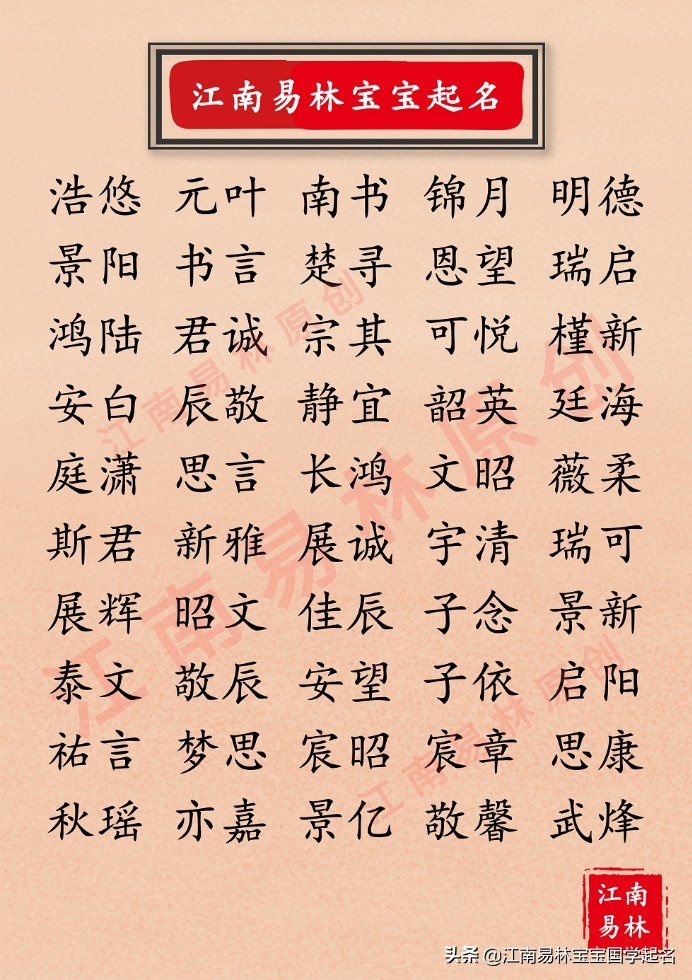 江南易林宝宝起名
浩悠 元叶 南书 锦月 明德
景阳 书言 楚寻 恩望 瑞启
鸿陆 君诚 宗其 可悦 槿新
安白 辰敬 静宜 韶英 廷海
庭潇 思言 长鸿 文昭 薇柔
斯君 新雅 展诚 宇清 瑞可
展辉 昭文 佳辰 子念 景新
泰文 敬辰 安望 子依 启阳
祐言 梦思 宸昭 宸章 思康
秋瑶 亦嘉 景亿 敬馨 武烽
江南易林原创
江南易林原创
江南易林原创
江南
易林
头条 @江南易林宝宝国学起名